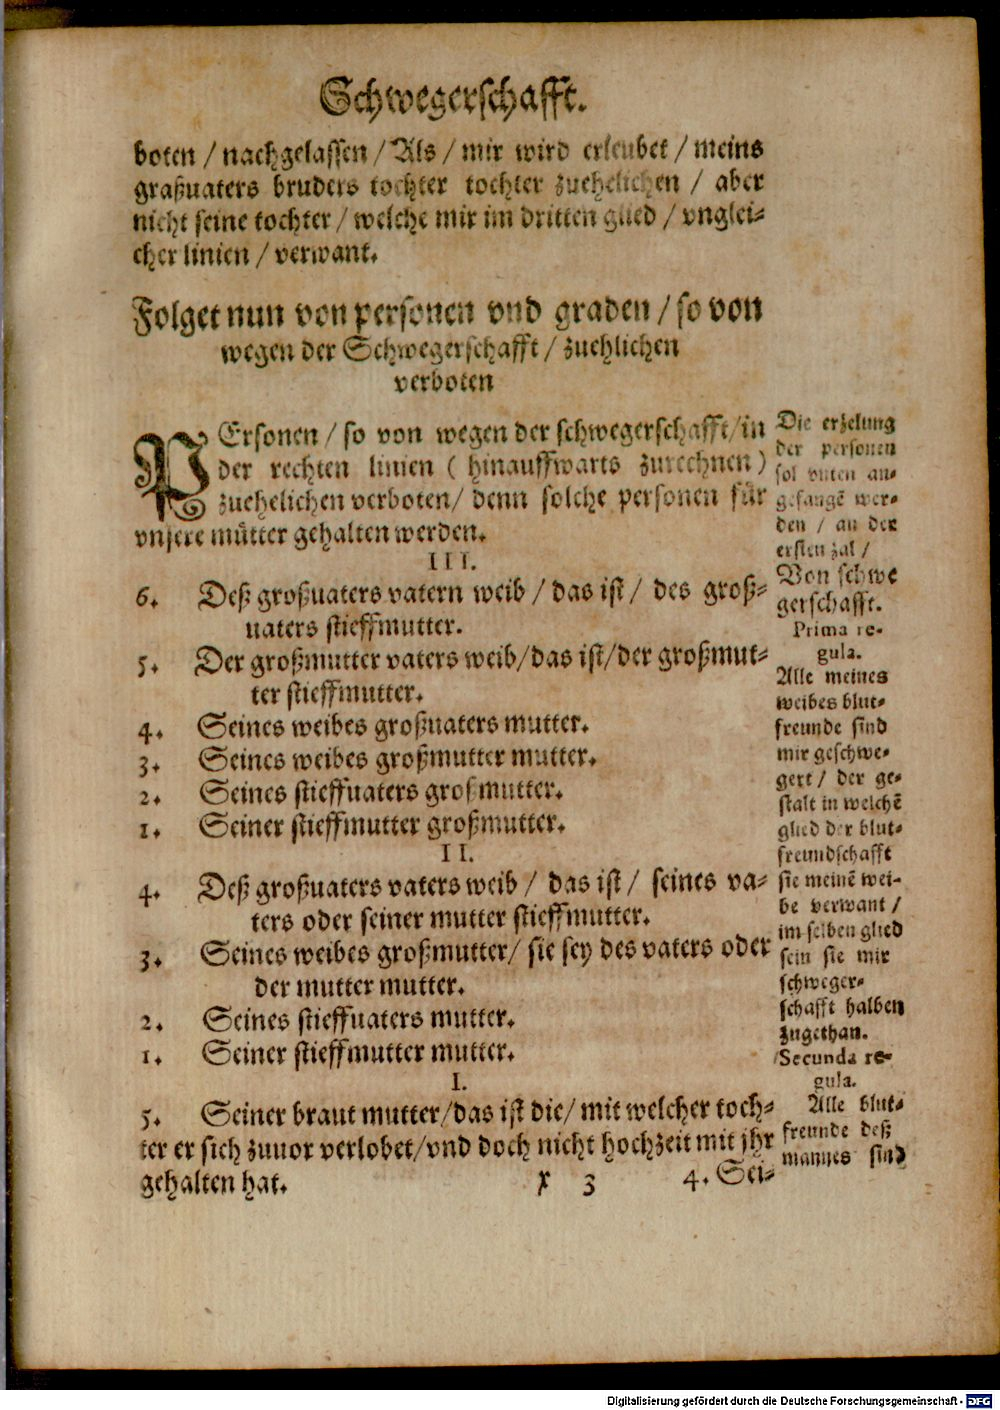 Schwegerschafft.
boten / nachgelassen / Als / mir wird erleubet / meins
graßuaters bruders tochter tochter zuehelichen / aber
nicht seine tochter / welche mir im dritten glied / vnglei⸗
cher linien / verwant.
Folget nun von personen vnd graden / so von
wegen der Schwegerschafft / zuehlichen
verboten
PErsonen / so von wegen der schwegerschafft / in
der rechten linien ( hinauffwarts zurechnen )
zuehelichen verboten / denn solche personen für
vnsere mütter gehalten werden.
III.
6. Deß großuaters vatern weib / das ist / des groß⸗
uaters stieffmutter.
5. Der großmutter vaters weib / das ist / der großmut⸗
ter stieffmutter.
4. Seines weibes großuaters mutter.
3. Seines weibes großmutter mutter.
2. Seines stieffuaters großmutter.
1. Seiner stieffmutter großmutter.
II.
4. Deß großuaters vaters weib / das ist / seines va⸗
ters oder seiner mutter stieffmutter.
3. Seines weibes großmutter / sie sey des vaters oder
der mutter mutter.
2. Seines stieffuaters mutter.
1. Seiner stieffmutter mutter.
I.
5. Seiner braut mutter / das ist die / mit welcher toch⸗
ter er sich zuuor verlobet / vnd doch nicht hochzeit mit jhr
gehalten hat.
X 3 4. Sei⸗
Die erzelung
der personen
sol vnten an⸗
gefangē wer⸗
den / an der
ersten zal /
Von schwe
gerschafft.
Prima re-
gula.
Alle meines
weibes blut⸗
freunde sind
mir geschwe⸗
gert / der ge⸗
stalt in welchē
glied der blut⸗
freundschafft
sie meinē wei⸗
be verwant /
im selben glied
sein sie mir
schweger⸗
schafft halben
zugethan.
Secunda re-
gula.
Alle blut⸗
freunde deß
mannes sind
Digitalisierung gefördert durch die Deutsche Forschungsgemeinschaft - DFG